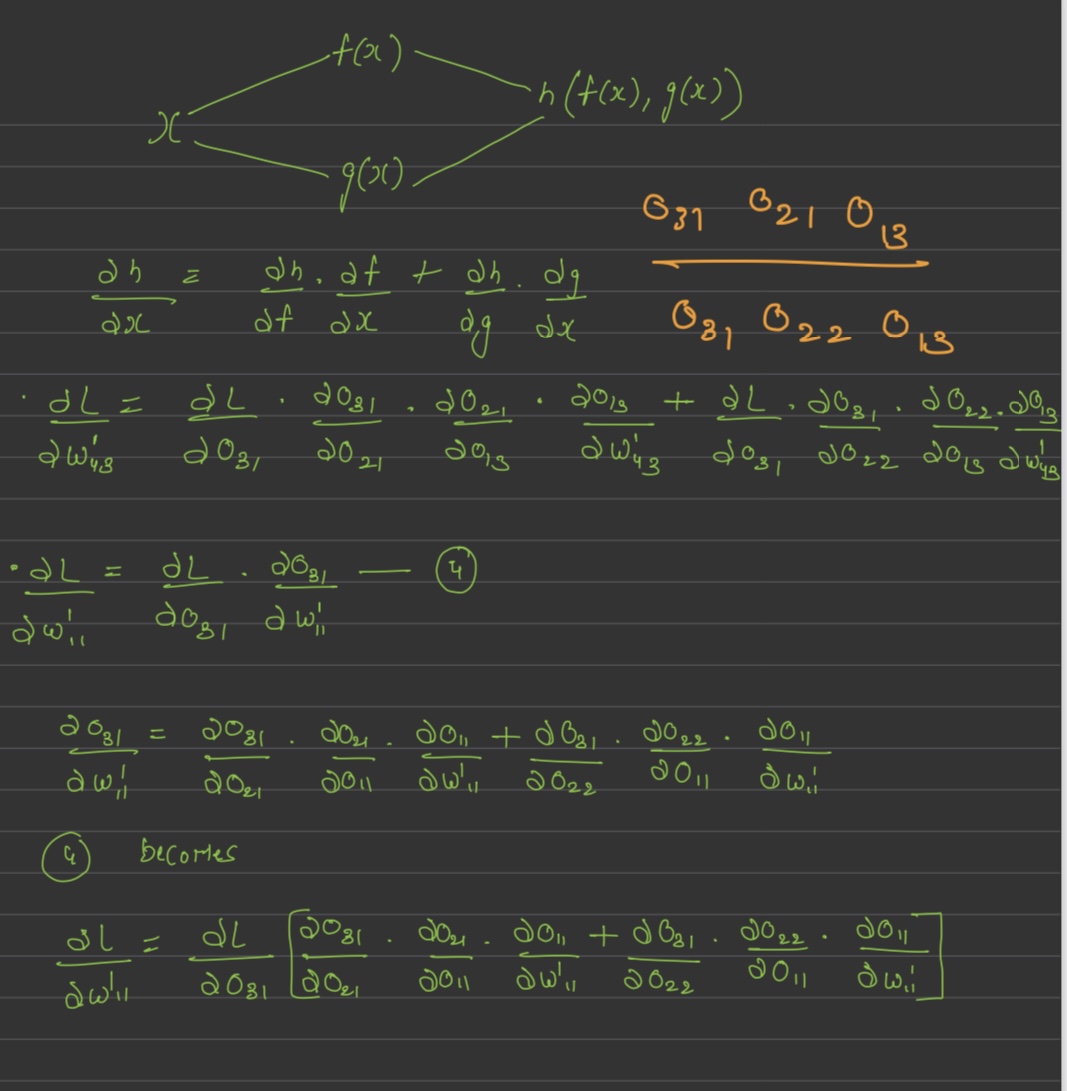 f(x)
x h(f(x), g(x))
g(x)
O₃₁ O₂₁ O₁₃
O₃₁ O₂₂ O₁₃
∂h/∂x = ∂h/∂f . ∂f/∂x + ∂h/∂g . ∂g/∂x
. ∂L/∂w¹₄₃ = ∂L/∂O₃₁ . ∂O₃₁/∂O₂₁ . ∂O₂₁/∂O₁₃ . ∂O₁₃/∂w¹₄₃ + ∂L/∂O₃₁ . ∂O₃₁/∂O₂₂ . ∂O₂₂/∂O₁₃ . ∂O₁₃/∂w¹₄₃
. ∂L/∂w¹₁₁ = ∂L/∂O₃₁ . ∂O₃₁/∂w¹₁₁ — ④
∂O₃₁/∂w¹₁₁ = ∂O₃₁/∂O₂₁ . ∂O₂₁/∂O₁₁ . ∂O₁₁/∂w¹₁₁ + ∂O₃₁/∂O₂₂ . ∂O₂₂/∂O₁₁ . ∂O₁₁/∂w¹₁₁
④ becomes
∂L/∂w¹₁₁ = ∂L/∂O₃₁ [∂O₃₁/∂O₂₁ . ∂O₂₁/∂O₁₁ . ∂O₁₁/∂w¹₁₁ + ∂O₃₁/∂O₂₂ . ∂O₂₂/∂O₁₁ . ∂O₁₁/∂w¹₁₁]